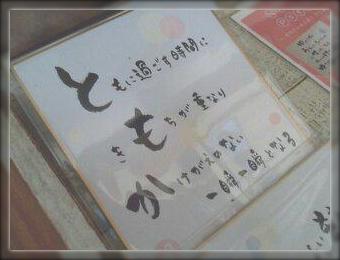 ともに過ごす時間に
きもちが重なり
かけがえのない
一瞬一瞬となる